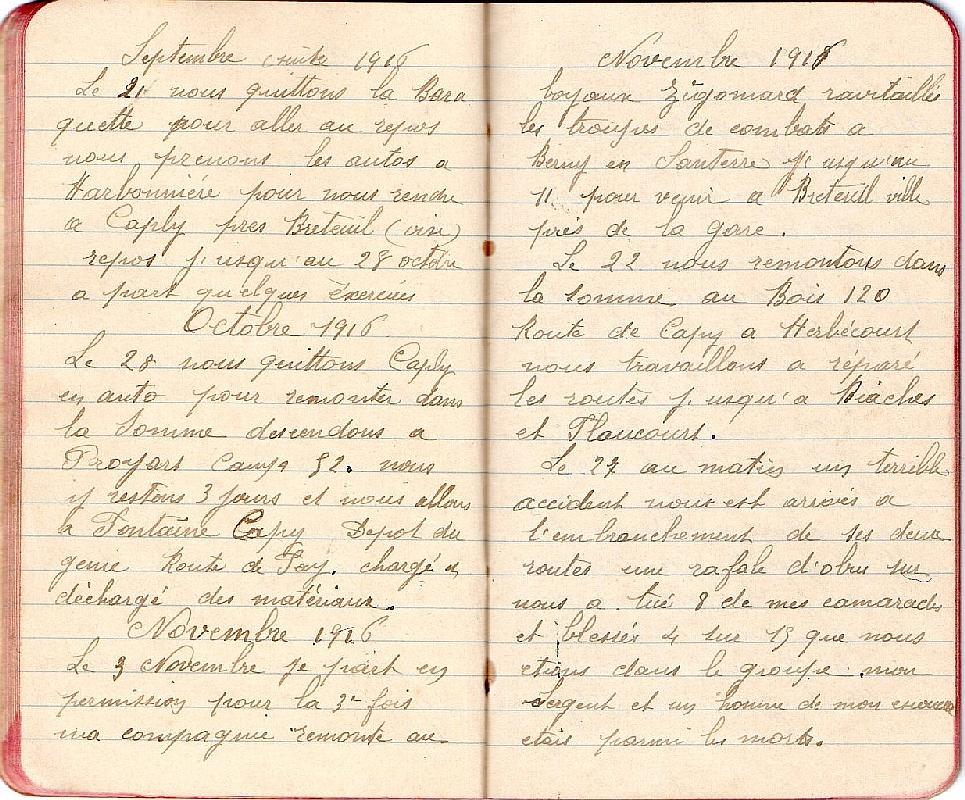 Septembre suite 1916
Le 21 nous quittons la Bara
quette pour aller au repos
nous prenons les autos a
Harbonnière pour nous rendre
a Caply pres Breteuil (oise)
repos j'usqu'au 28 octobre
a part quelques éxercices
Octobre 1916
Le 28 nous quittons Caply
en auto pour remonter dans
la Somme descendons a
Proyars Camp 52. nous
y restons 3 jours et nous allons
a Fontaine Capy Depot du
genie Route de Fay. chargé et
déchargé des matériaux.
Novembre 1916
Le 3 Novembre je part en
permission pour la 3e fois
ma compagnie remonte au
Novembre 1916
boyaux Zigomard ravitaillés
les troupes de combats a
Berny en Santerre j'usqu'au
11 pour venir a Breteuil ville
près de la gare.
Le 22 nous remontons dans
la Somme au Bois 120
Route de Capy a Herbécourt
nous travaillons a réparé
les routes j'usqu'a Biaches
et Flaucourt.
Le 27 au matin un terrible
accident nous est arrivés a
l'embranchement de ses deux
routes une rafale d'obus sur
nous a tué 8 de mes camarades
et blessés 4 sur 15 que nous
etions dans le groupe mon
Sergent et un homme de mon escouade
etais parmi les morts.